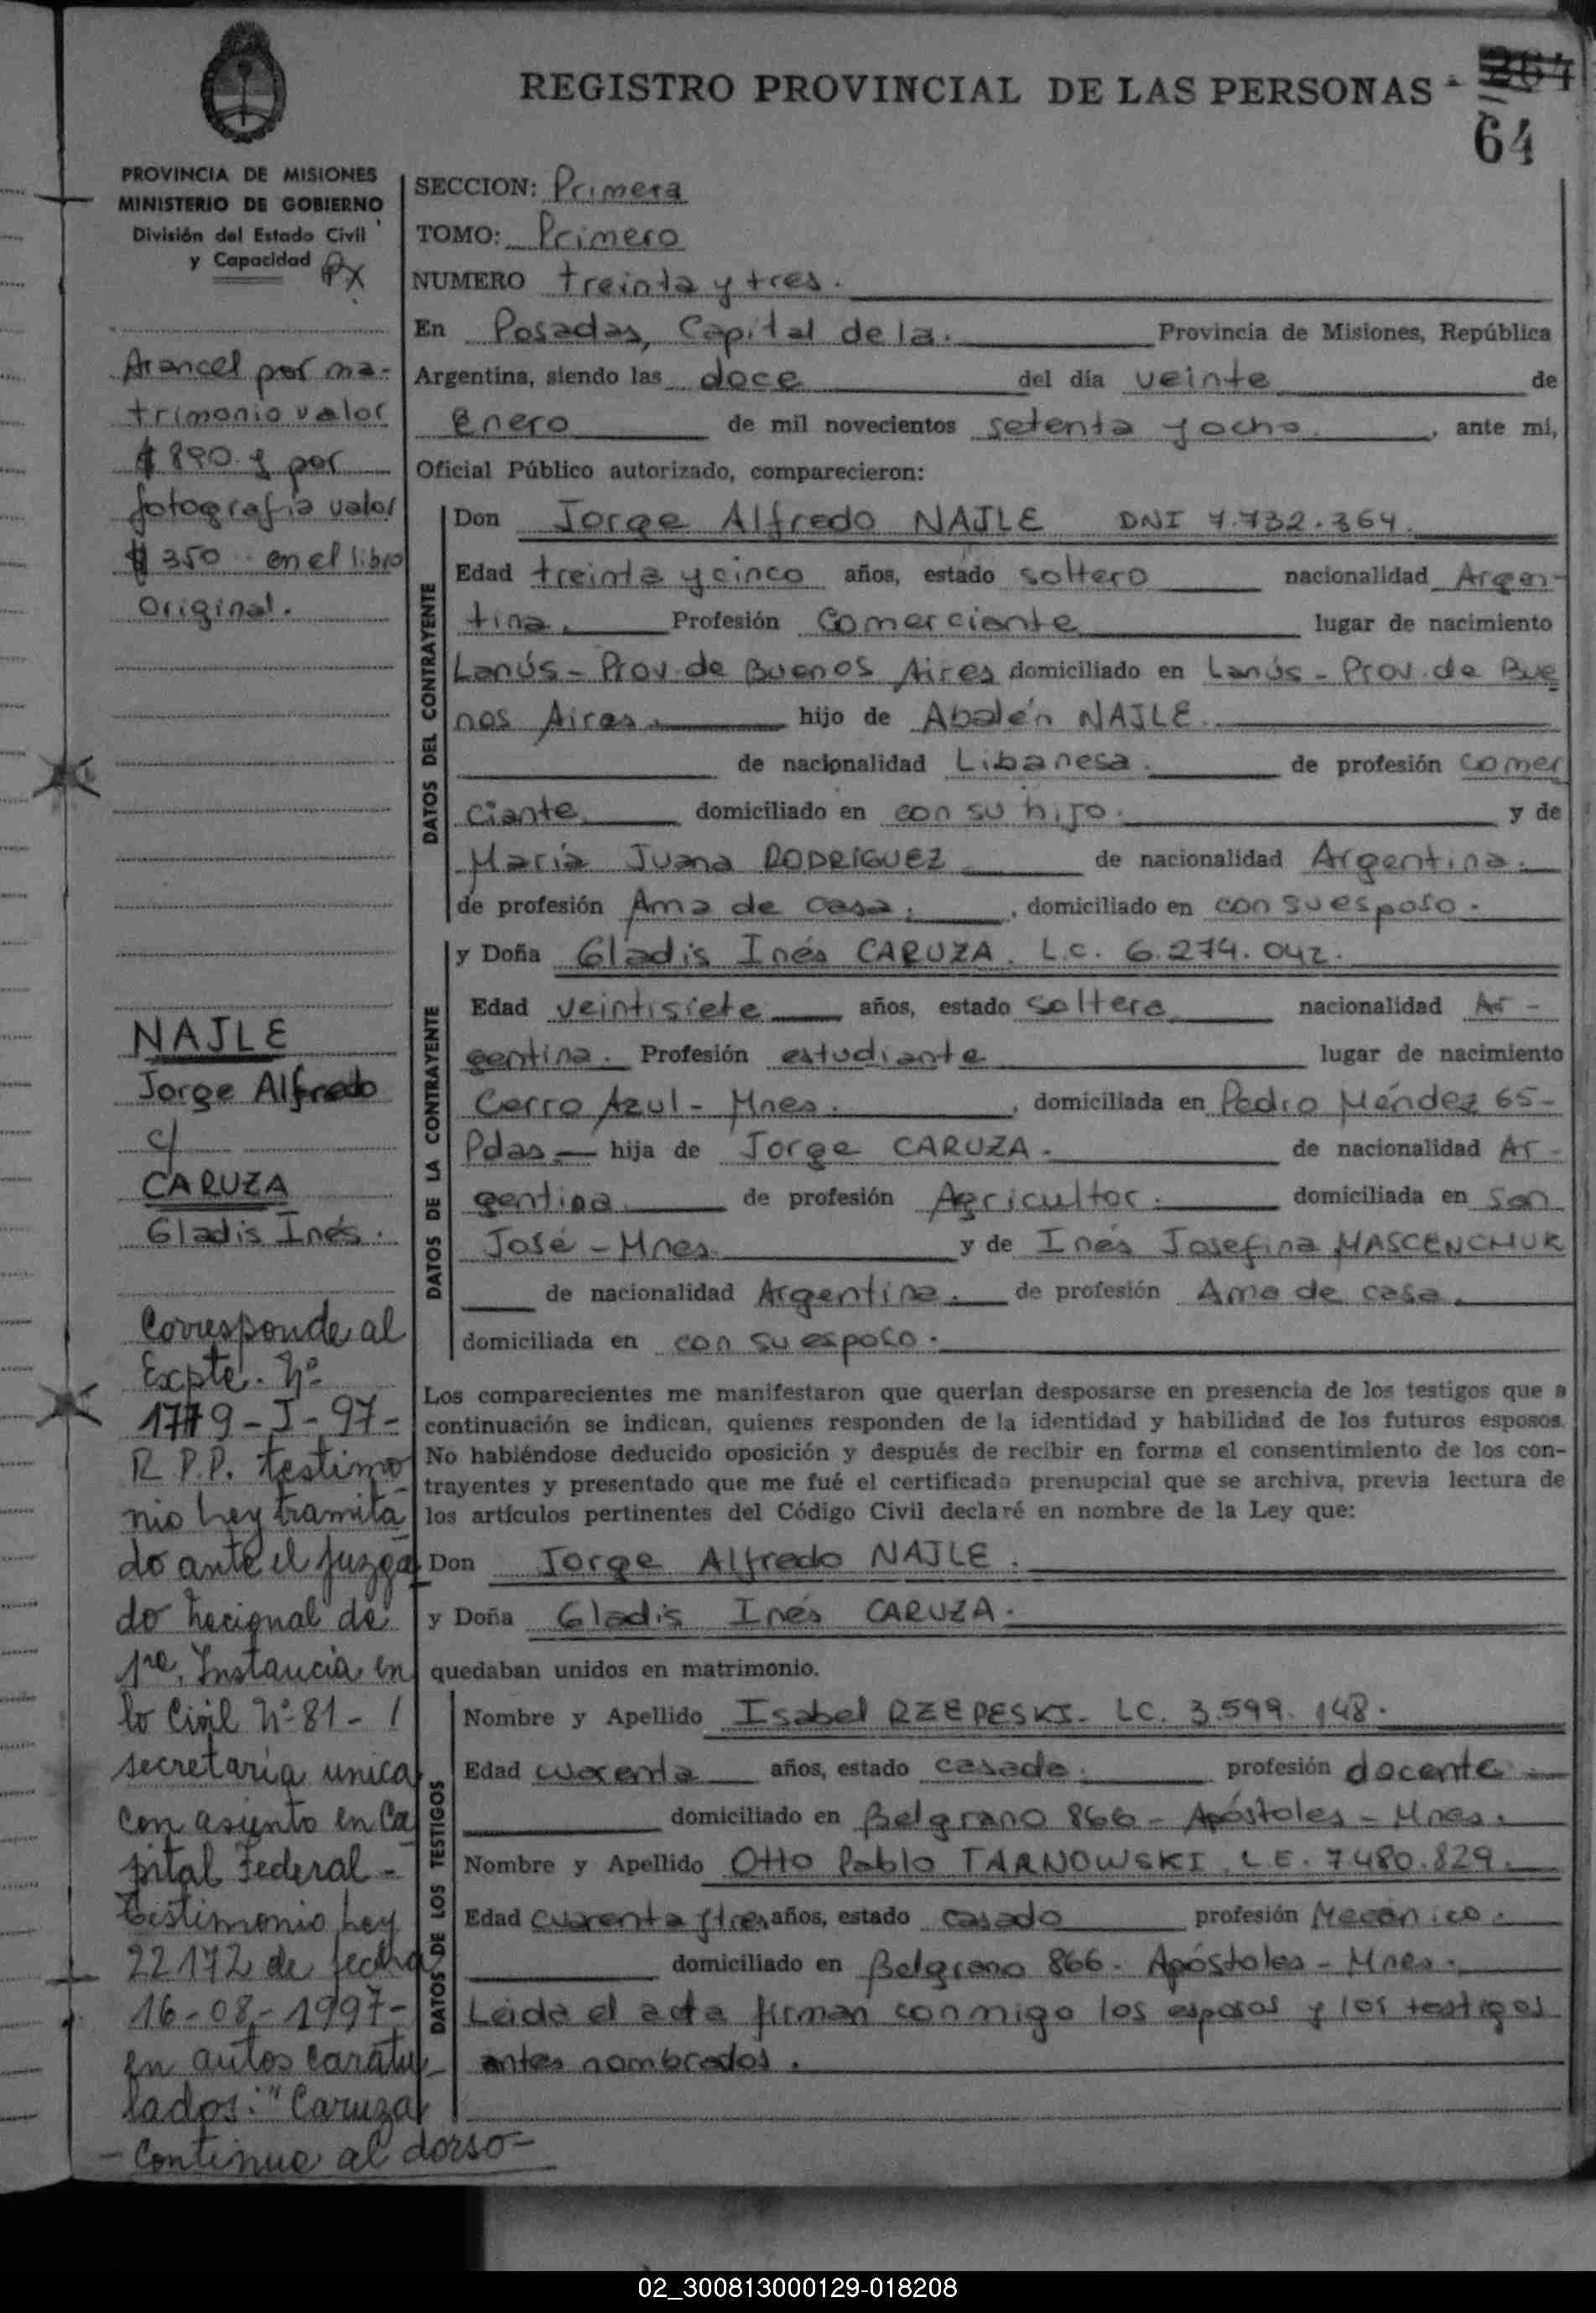 REGISTRO PROVINCIAL DE LAS PERSONAS -
64
PROVINCIA DE MISIONES
MINISTERIO DE GOBIERNO
División del Estado Civil
y Capacidad
Arancel por ma-
trimonio valor
$ 890 y por
fotografía valor
$ 350 en el libro
original.
NAJLE
Jorge Alfredo
c/
CARUZA
Gladis Inés.
Corresponde al
Expte. Nº
1779-J-97-
R.P.P. testimo
nio Ley tramita
do ante el Juzga
do Nacional de
1ra. Instancia en
lo Civil Nº 81 -
secretaría unica
con asiento en Ca
pital Federal -
Testimonio Ley
22172 de fecha
16-08-1997-
en autos caratu-
lados: "Caruza
- Continua al dorso -
SECCION: Primera
TOMO: Primero
NUMERO treinta y tres.
En Posadas, Capital de la. Provincia de Misiones, República
Argentina, siendo las doce del día veinte de
Enero de mil novecientos setenta y ocho, ante mi,
Oficial Público autorizado, comparecieron:
DATOS DEL CONTRAYENTE
Don Jorge Alfredo NAJLE DNI 7.732.364.
Edad treinta y cinco años, estado soltero nacionalidad Argen-
tina. Profesión Comerciante lugar de nacimiento
Lanús - Prov. de Buenos Aires domiciliado en Lanús - Prov. de Bue
nos Aires. hijo de Abalén NAJLE.
de nacionalidad Libanesa. de profesión comer
ciante domiciliado en con su hijo. y de
María Juana RODRIGUEZ de nacionalidad Argentina.
de profesión Ama de casa. , domiciliado en con su esposo.
DATOS DE LA CONTRAYENTE
y Doña Gladis Inés CARUZA. L.C. 6.274.042.
Edad veintisiete años, estado soltera nacionalidad Ar-
gentina. Profesión estudiante lugar de nacimiento
Cerro Azul - Mnes. , domiciliada en Pedro Méndez 65-
Pdas.- hija de Jorge CARUZA. de nacionalidad Ar-
gentina de profesión Agricultor. domiciliada en San
José - Mnes. y de Inés Josefina MASCENCHUK
de nacionalidad Argentina. de profesión Ama de casa.
domiciliada en con su esposo.
Los comparecientes me manifestaron que querían desposarse en presencia de los testigos que a
continuación se indican, quienes responden de la identidad y habilidad de los futuros esposos.
No habiéndose deducido oposición y después de recibir en forma el consentimiento de los con-
trayentes y presentado que me fué el certificado prenupcial que se archiva, previa lectura de
los artículos pertinentes del Código Civil declaré en nombre de la Ley que:
Don Jorge Alfredo NAJLE.
y Doña Gladis Inés CARUZA.
quedaban unidos en matrimonio.
DATOS DE LOS TESTIGOS
Nombre y Apellido Isabel RZEPESKI- LC. 3.599.148.
Edad cuarenta años, estado casada. profesión docente
domiciliado en Belgrano 866 - Apóstoles - Mnes.
Nombre y Apellido Otto Pablo TARNOWSKI. L.E. 7.480.829.
Edad cuarenta y tres años, estado casado profesión Mecánico.
domiciliado en Belgrano 866 - Apóstoles - Mnes.
Leida el acta firman conmigo los esposos y los testigos
antes nombrados.
02_300813000129-018208